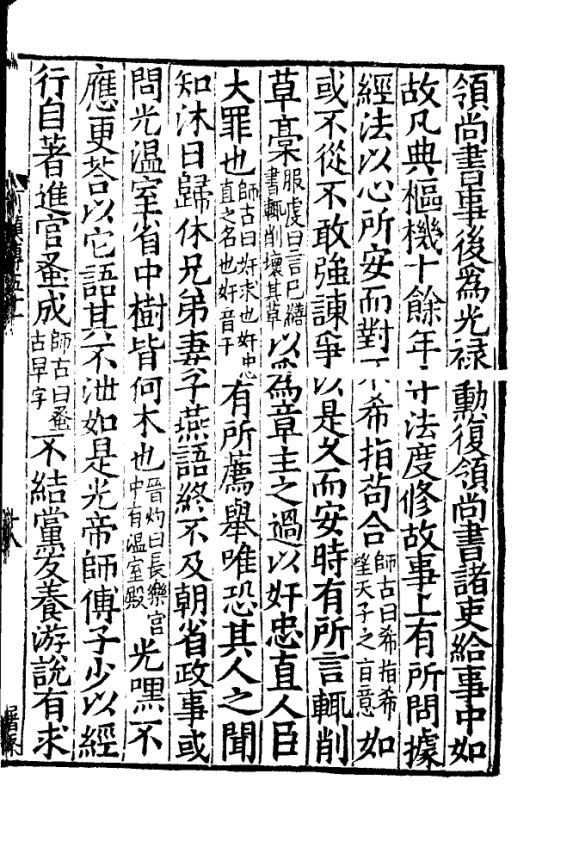 領尚書事後爲光禄勲復領尚書諸吏給事中如
故凡典樞機十餘年守法度修故事上有所問據
經法以心所安而對不希指苟合師古曰希指希望天子之旨意如
或不從不敢強諫爭以是久而安時有所言輒削
草藁服虔曰言已繕書輒削壞其草以爲章主之過以奸忠直人臣
大罪也師古曰奸求也奸忠直之名也奸音干有所薦舉唯恐其人之聞
知沐日歸休兄弟妻子燕語終不及朝省政事或
問光温室省中樹皆何木也晉灼曰長樂宮中有温室殿光嘿不
應更荅以它語其不泄如是光帝師傅子少以經
行自著進官蚤成師古曰蚤古早字不結黨友養游說有求